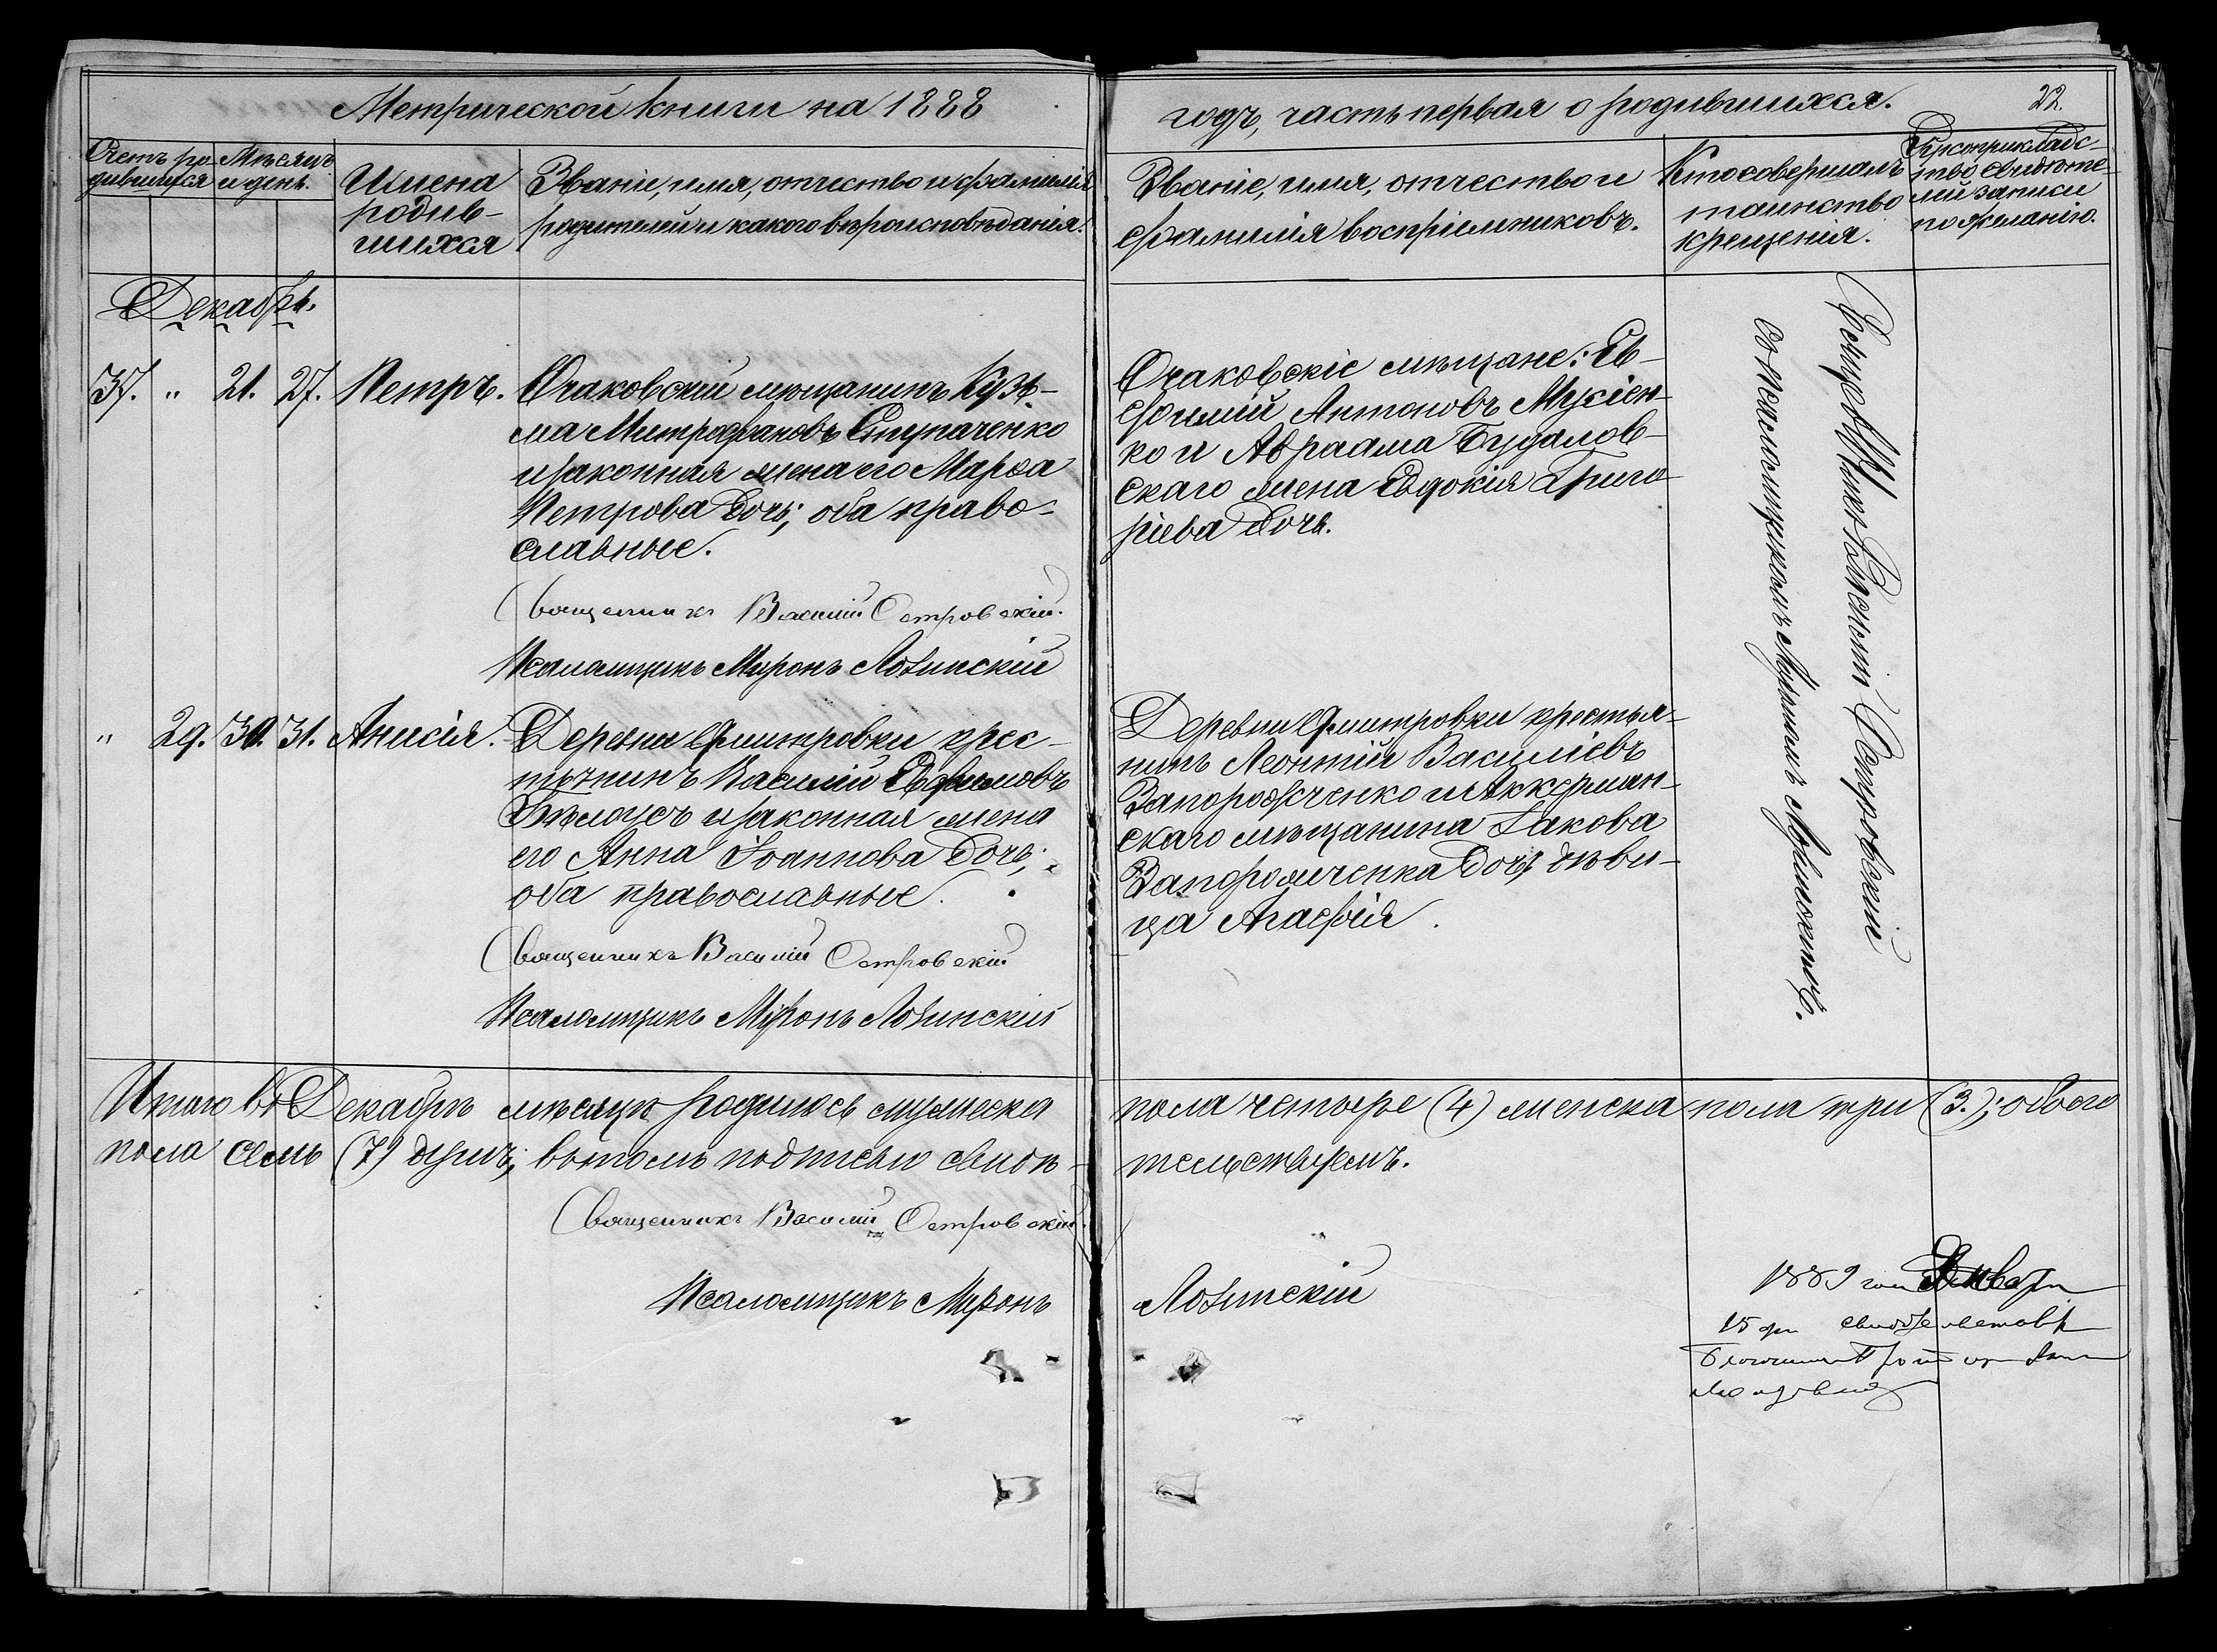 Метрической книги на 1888
годъ, часть первая о родившихся.
22.
Счетъ ро-
дившихся
Мѣсяцъ
и день.
Имена
родив-
шихся
Званіе, имя, отчество и фамилія
родителей и какого вѣроисповѣданія.
Званіе, имя, отчество и
фамилія воспріемниковъ.
Кто совершалъ
таинство
крещенія.
записи
по желанію.
Декабрь.
37. " 21. 27. Петръ.
Очаковскій мѣщанинъ Кузь-
ма Митрофановъ Ступаченко
и законная жена его Марѳа
Петрова дочь; оба право-
славные.
Священникъ Василій Островскій.
Псаломщикъ Миронъ Лозинскій
Очаковскіе мѣщане: Ев-
фимій Антоновъ Мусіен-
ко и Авраама Будалов-
скаго жена Евдокія Григо-
ріева дочь.
Священникъ Василій Островскій
съ псаломщикомъ Мирономъ Лозинскимъ.
" 29. 30. 31. Анисія.
Деревни Дмитровки крес-
тьянинъ Василій Евфимовъ
Бѣлоусъ и законная жена
его Анна Іоаннова дочь;
оба православные.
Священникъ Василій Островскій
Псаломщикъ Миронъ Лозинскій
Деревни Дмитровки крестья-
нинъ Леонтій Василіевъ
Запорожченко и Аккерман-
скаго мѣщанина Іакова
Запорожченка дочь дѣви-
ца Агафія.
Итого въ Декабрѣ мѣсяцѣ родилось мужеска пола четыре (4) женска пола три (3.); обоего
пола семь (7) душъ; въ томъ подписью свидѣ-тельствуемъ.
Священникъ Василій Островскій.
Псаломщикъ Миронъ Лозинскій
1889 года Января
15 дня